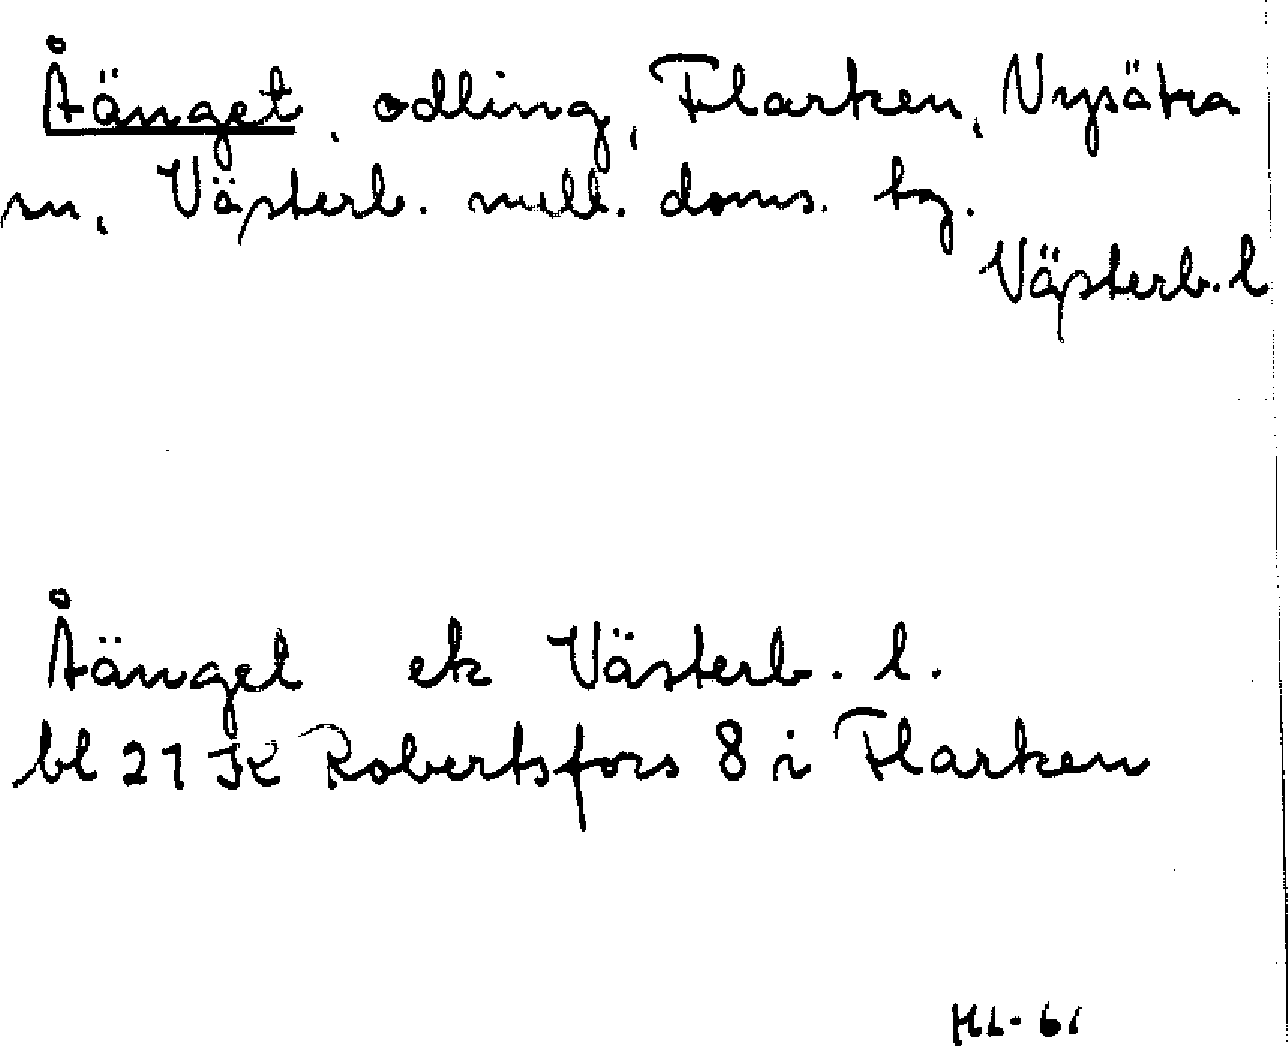 Åänget, odling, Flarken, Nysätra
sn, Västerb. mell. doms. tg.
Västerb. l
Åänget ek Västerb. l.
bl 21 JK Robertsfors 8 i Flarken
HL-61